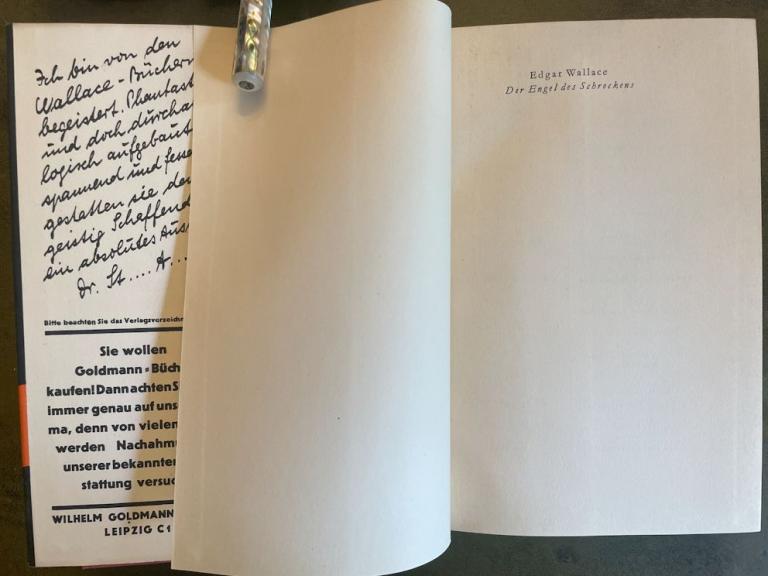 Ich bin von den
Wallace-Büchern
begeistert. Phantast
und doch durcha
logisch aufgebaut
spannend und fesse
gestatten sie dem
geistig Schaffend
ein absolutes Aus
Dr. St.... A...
Bitte beachten Sie das Verlagsverzeichn
Sie wollen
Goldmann-Büch
kaufen! Dann achten S
immer genau auf uns
ma, denn von vielen
werden Nachahm
unserer bekannten
stattung versuc
WILHELM GOLDMANN
LEIPZIG C1
Edgar Wallace
Der Engel des Schreckens